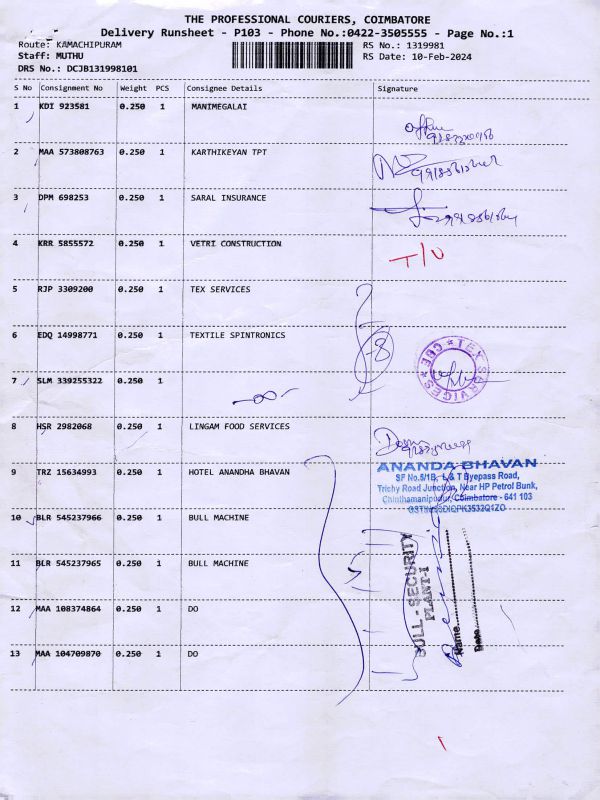 THE PROFESSIONAL COURIERS, COIMBATORE
Delivery Runsheet - P103 - Phone No.:0422-3505555 - Page No.:1
Route: KAMACHIPURAM RS No.: 1319981
Staff: MUTHU RS Date: 10-Feb-2024
DRS No.: DCJB131998101
S No Consignment No Weight PCS Consignee Details Signature
1 KDI 923581 0.250 1 MANIMEGALAI
2 MAA 573808763 0.250 1 KARTHIKEYAN TPT
3 DPM 698253 0.250 1 SARAL INSURANCE
4 KRR 5855572 0.250 1 VETRI CONSTRUCTION
T/U
5 RJP 3309200 0.250 1 TEX SERVICES
6 EDQ 14998771 0.250 1 TEXTILE SPINTRONICS
8
TEX SERVICES * CBE *
7 SLM 339255322 0.250 1
8 HSR 2982068 0.250 1 LINGAM FOOD SERVICES
9 TRZ 15634993 0.250 1 HOTEL ANANDHA BHAVAN
ANANDA BHAVAN
SF No.5/1B, L & T Byepass Road,
Trichy Road Junction, Near HP Petrol Bunk,
Chinthamanipudur, Coimbatore - 641 103
10 BLR 545237966 0.250 1 BULL MACHINE
11 BLR 545237965 0.250 1 BULL MACHINE
12 MAA 108374864 0.250 1 DO
13 MAA 104709870 0.250 1 DO
BULL - SECURITY
PLANT-I
Name
Date